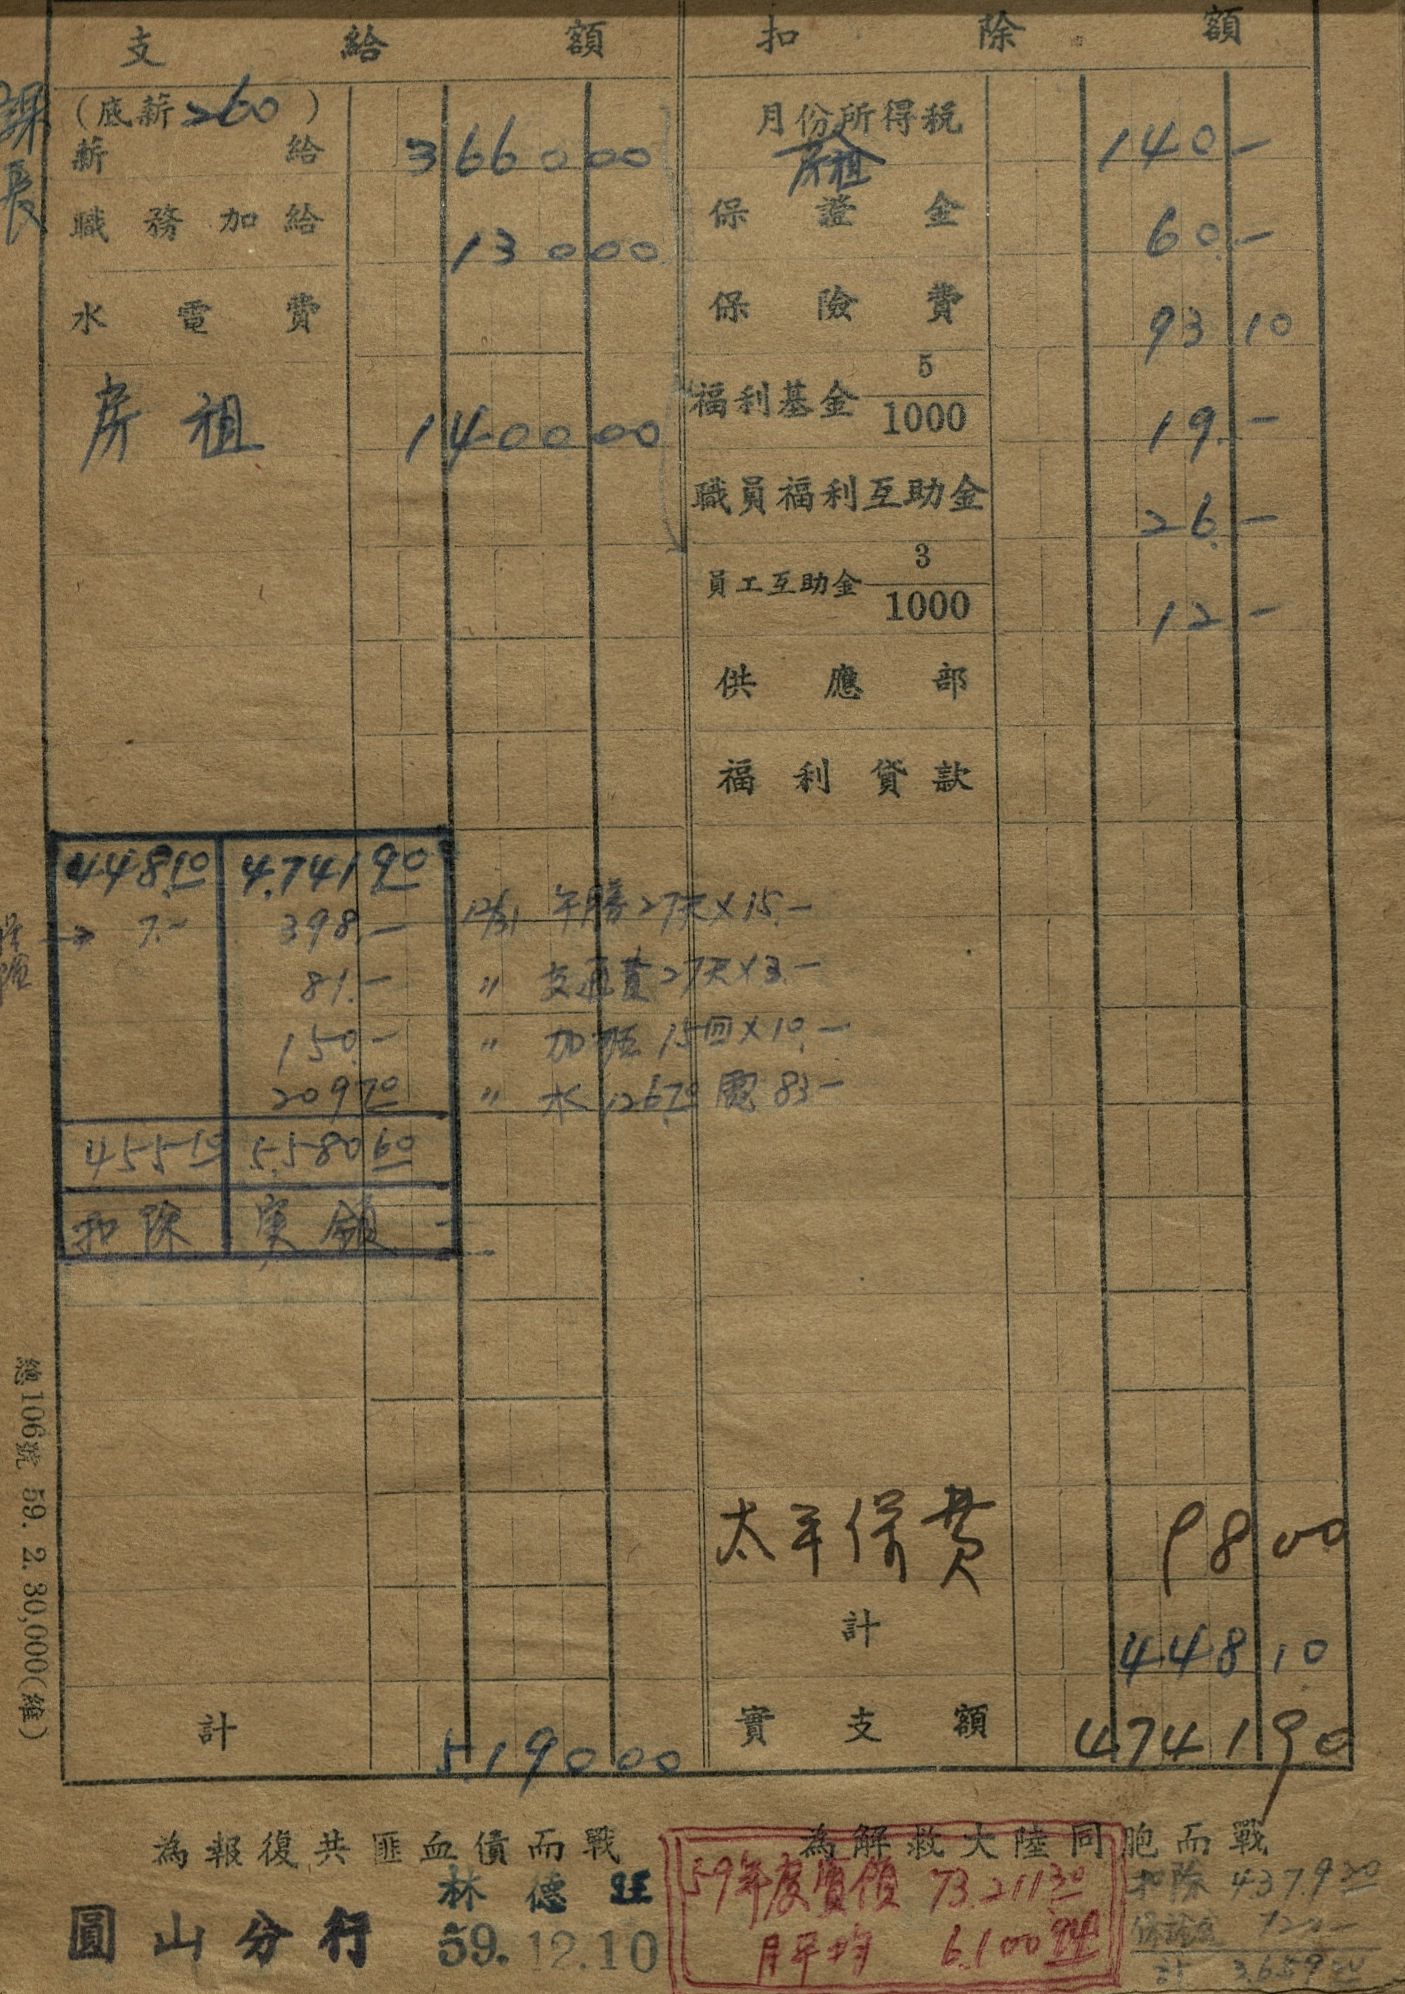 支給額 扣除額
課長
(底薪260)
薪給 3660 00
職務加給 130 00
水電費
房租 1400 00
月份所得稅 140 -
房租
保證金 60 -
保險費 93 10
福利基金 5/1000 19 -
職員福利互助金 26 -
員工互助金 3/1000 12 -
供應部
福利貸款
448.10 4,741 90
→ 7.- 398.- 12/31 午膳27天×15.-
81.- 〃 交通費27天×3.-
150.- 〃 加班 15回×10.-
209 70 〃 水 126.70 電 83-
455 10 5,580 60
扣除 実領
太平保費 98 00
計 448 10
計 5,190 00
實支額 4741 90
總106號 59. 2. 30,000(維)
為報復共匪血債而戰 為解救大陸同胞而戰
林德旺
圓山分行 59.12.10
59年度實領 73,211 30
月平均 6,100 94
扣除 4379 20
保證金 720 -
計 3,659 20